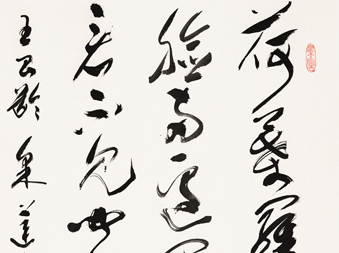 荷葉羅
臉兩邊
看不見聞
王昌齡采蓮